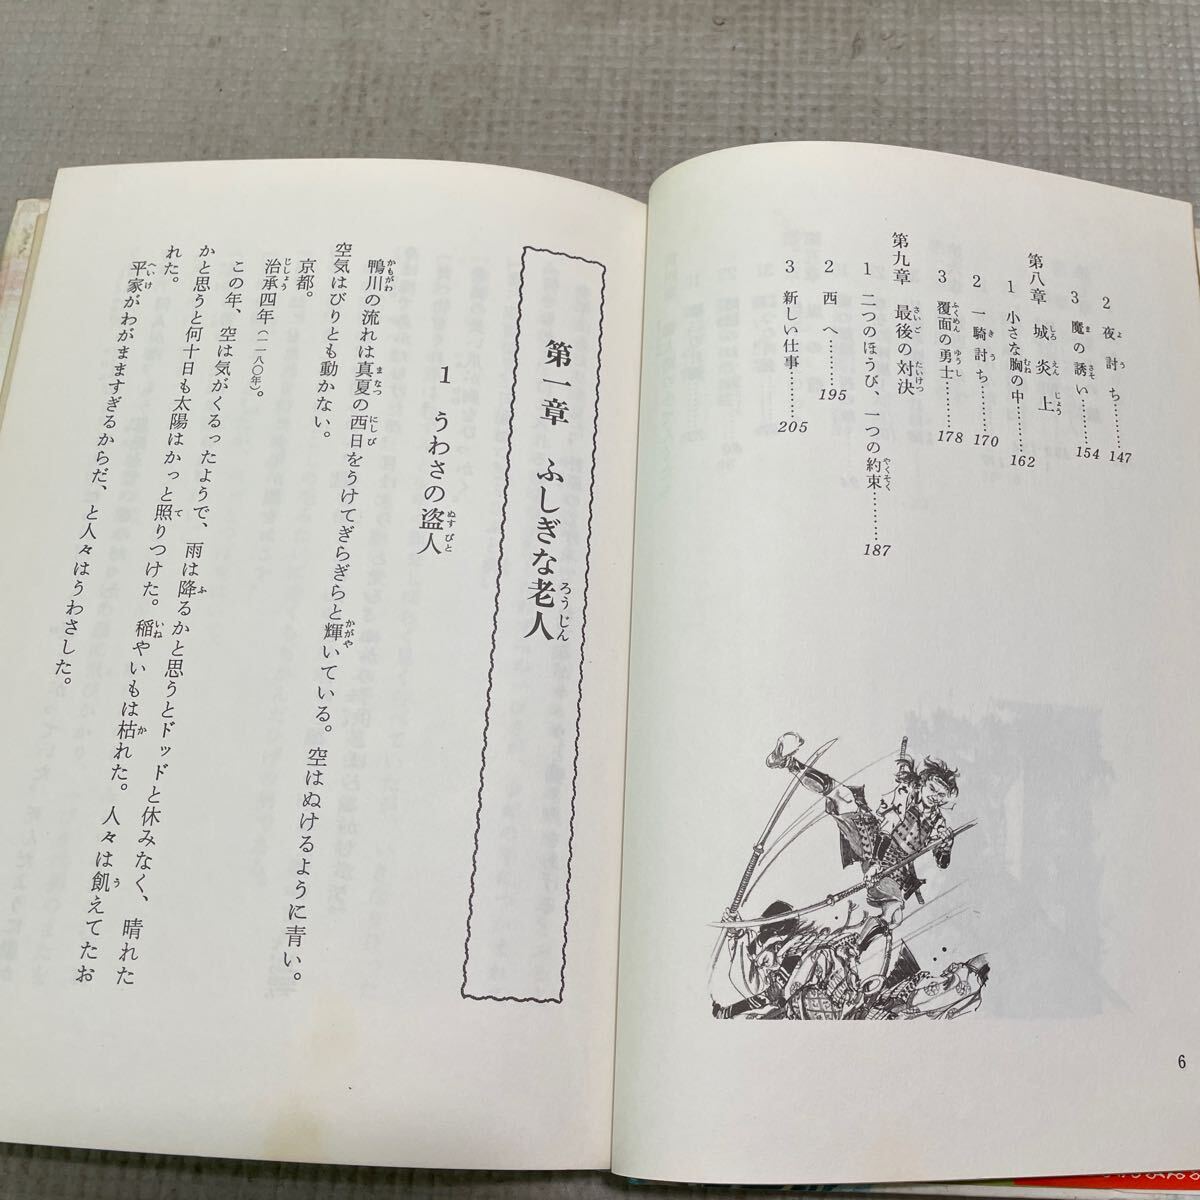 2 夜討ち……147
3 魔の誘い……154
第八章 城炎上
1 小さな胸の中……162
2 一騎討ち……170
3 覆面の勇士……178
第九章 最後の対決
1 二つのほうび、一つの約束……187
2 西へ……195
3 新しい仕事……205
6
第一章 ふしぎな老人
1 うわさの盗人
鴨川の流れは真夏の西日をうけてぎらぎらと輝いている。空はぬけるように青い。
空気はびりとも動かない。
京都。
治承四年(一一八〇年)。
この年、空は気がくるったようで、雨は降るかと思うとドッドと休みなく、晴れた
かと思うと何十日も太陽はかっと照りつけた。稲やいもは枯れた。人々は飢えてたお
れた。
平家がわがまますぎるからだ、と人々はうわさした。